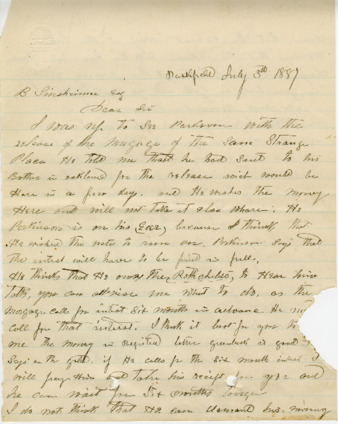 Marshfield July 3rd 1887
B Sinsheimer Esq
Dear Sir
I was up to See Parkinson with the
release of the Mortgage of the Sam Strange
Place He told me that he had Sent to his
Brother in oakland for the release which would be
Here in a few days and He wishes the money
Here and will not take it Else Where. He
Parkinson is on his Ear, because I think that
He wished the note to run on. Parkinson Says that
the intrest will have to be paid in full.
He thinks that He owns the Rothchilds, to Hear him
talk, you can advise me What to do, as the
Mortgage call for intrest Six months in advance He may
call for that interest. I think it best for you to
me the money in registered letter greenbacks is good
Says in the gold. if He calls for the Six month intrest I
will pay Him and take his receipt for you and
he can wait for Six months longer
I do not think that He can demand his money